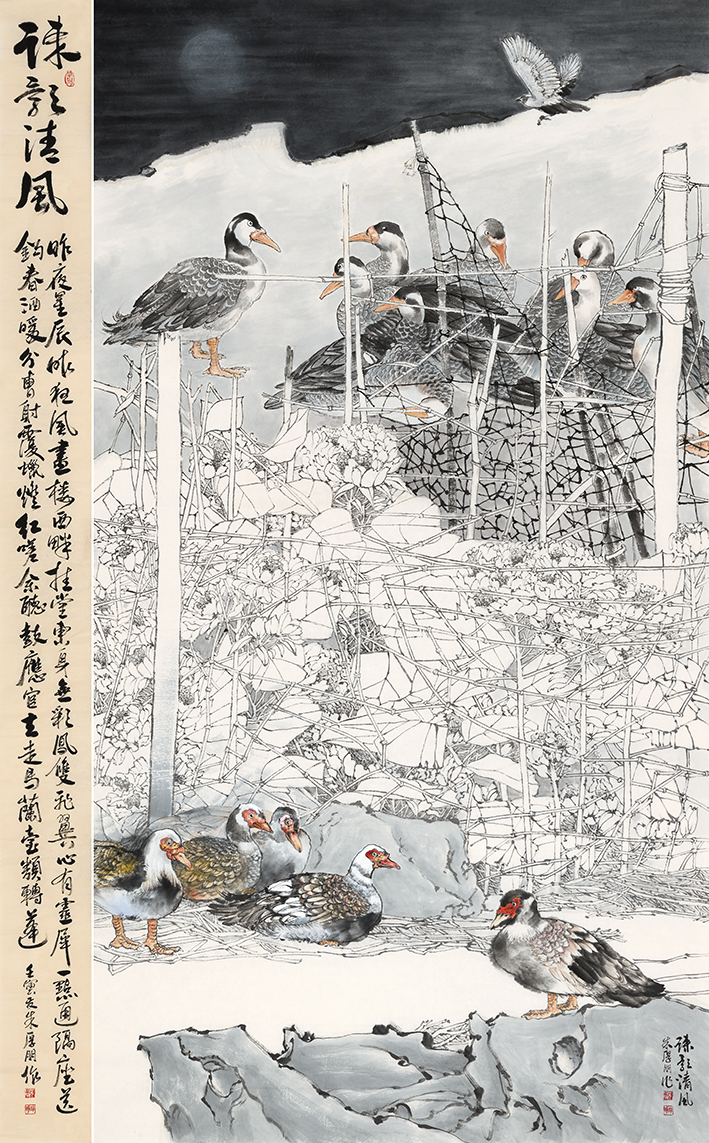 疎影清風
昨夜星辰昨夜風畫樓西畔桂堂東身無彩鳳雙飛翼心有靈犀一點通隔座送
鈎春酒暖分曹射覆蠟燈紅嗟余聽鼓應官去走馬蘭臺類轉蓬 壬寅夏朱厚朋作
疎影清風
朱厚朋作